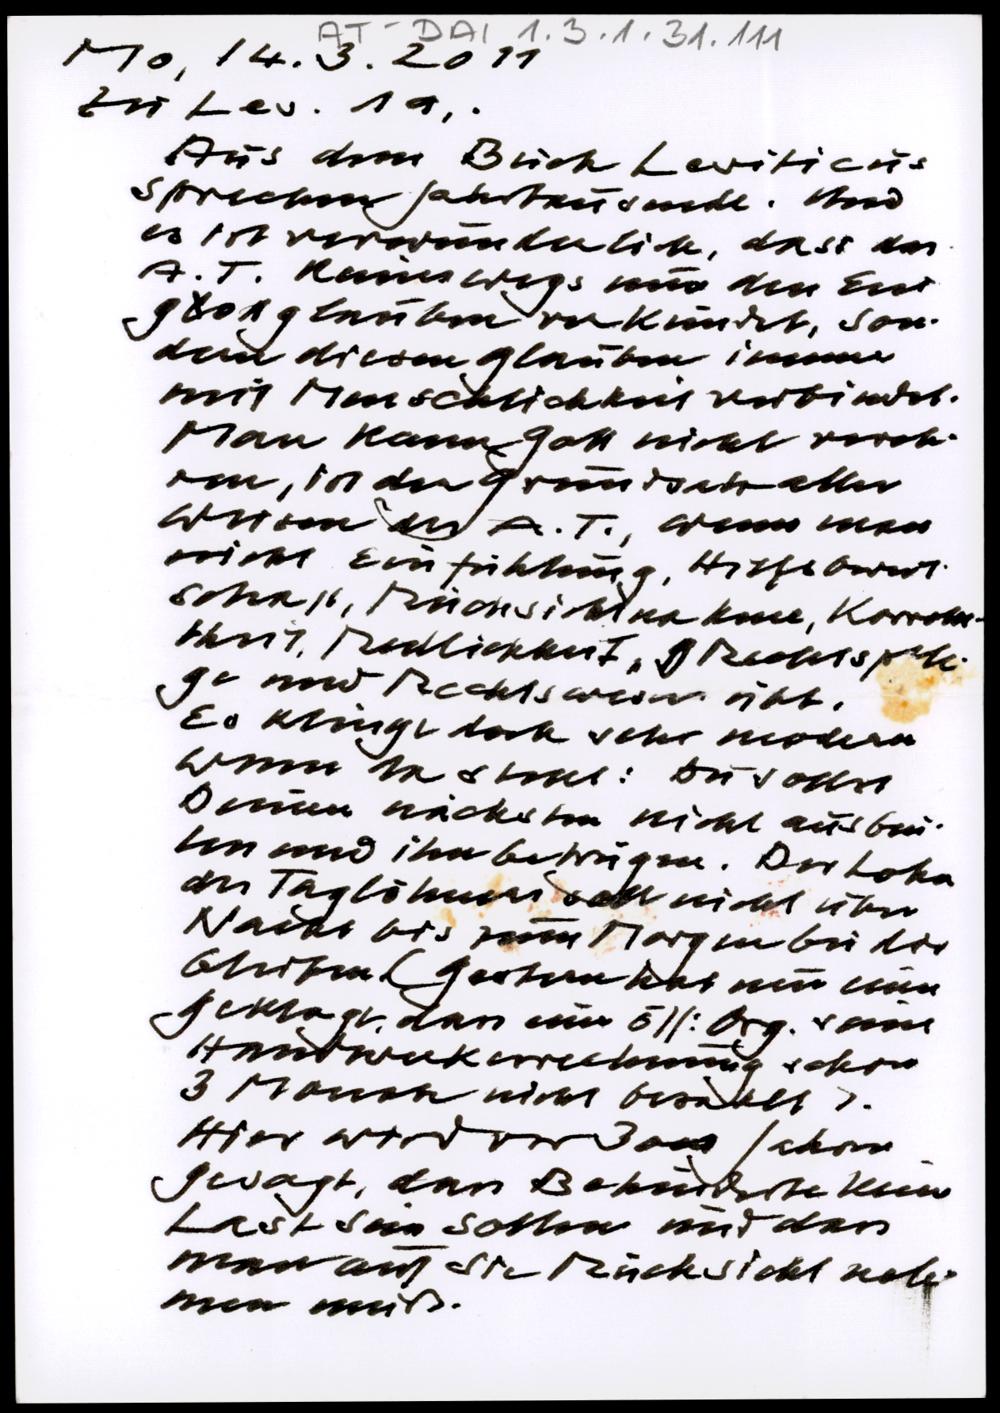 AT-DAI 1.3.1.31.111
Mo, 14.3.2011
Zu Lev. 19,.
Aus dem Buch Leviticus
sprechen Jahrtausende. Und
es ist verwunderlich, dass das
A.T. keineswegs nur den Ein
gottglauben verkündet, son-
dern diesen Glauben immer
mit Menschlichkeit verbindet.
Man kann Gott nicht vereh-
ren, ist der Grundsatz aller
Weisen des A.T., wenn man
nicht Einfühlung, Hilfsbereit-
schaft, Rücksichtnahme, Korrekt-
heit, Redlichkeit, Rechtspfle-
ge und Rechtswesen übt.
Es klingt doch sehr modern
wenn da steht: Du sollst
Deinen nächsten nicht ausbeu-
ten und ihn betrügen. Der Lohn
des Taglöhners soll nicht über
Nacht bis zum Morgen bei dir
bleiben (Gestern hat mir einer
geklagt, dass eine öff. Org. seine
Handwerkerrechnung schon
3 Monate nicht bezahlt).
Hier wird vor 3000 Jahren
gesagt, dass Behinderte keine
Last sein sollen und dass
man auf sie Rücksicht neh-
men muß.